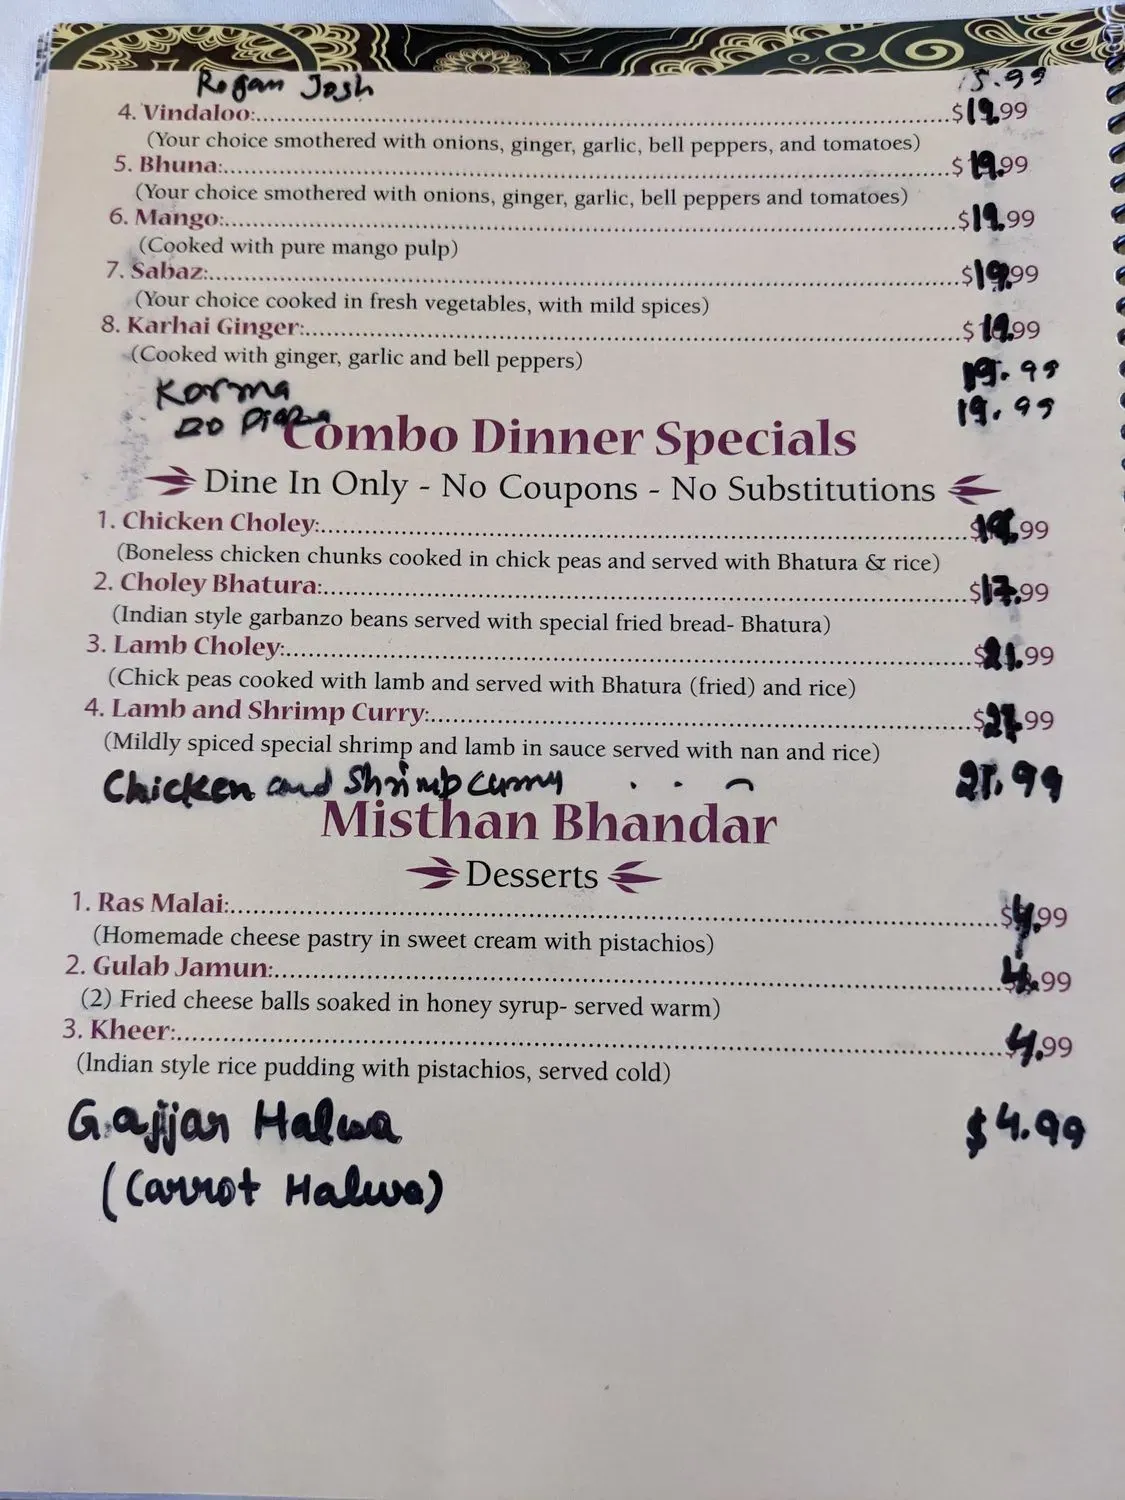 Rogan Josh 15.99
4. Vindaloo:..........$19.99
(Your choice smothered with onions, ginger, garlic, bell peppers, and tomatoes)
5. Bhuna:..........$19.99
(Your choice smothered with onions, ginger, garlic, bell peppers and tomatoes)
6. Mango:..........$19.99
(Cooked with pure mango pulp)
7. Sabaz:..........$19.99
(Your choice cooked in fresh vegetables, with mild spices)
8. Karhai Ginger:..........$19.99
(Cooked with ginger, garlic and bell peppers)
Korma 19.99
Do Piaza 19.99
Combo Dinner Specials
Dine In Only - No Coupons - No Substitutions
1. Chicken Choley:..........
(Boneless chicken chunks cooked in chick peas and served with Bhatura & rice)
2. Choley Bhatura:..........$17.99
(Indian style garbanzo beans served with special fried bread- Bhatura)
3. Lamb Choley:..........$21.99
(Chick peas cooked with lamb and served with Bhatura (fried) and rice)
4. Lamb and Shrimp Curry:..........
(Mildly spiced special shrimp and lamb in sauce served with nan and rice)
Chicken and Shrimp Curry 21.99
Misthan Bhandar
Desserts
1. Ras Malai:..........$4.99
(Homemade cheese pastry in sweet cream with pistachios)
2. Gulab Jamun:..........4.99
(2) Fried cheese balls soaked in honey syrup- served warm)
3. Kheer:..........4.99
(Indian style rice pudding with pistachios, served cold)
Gajjar Halwa $4.99
(Carrot Halwa)